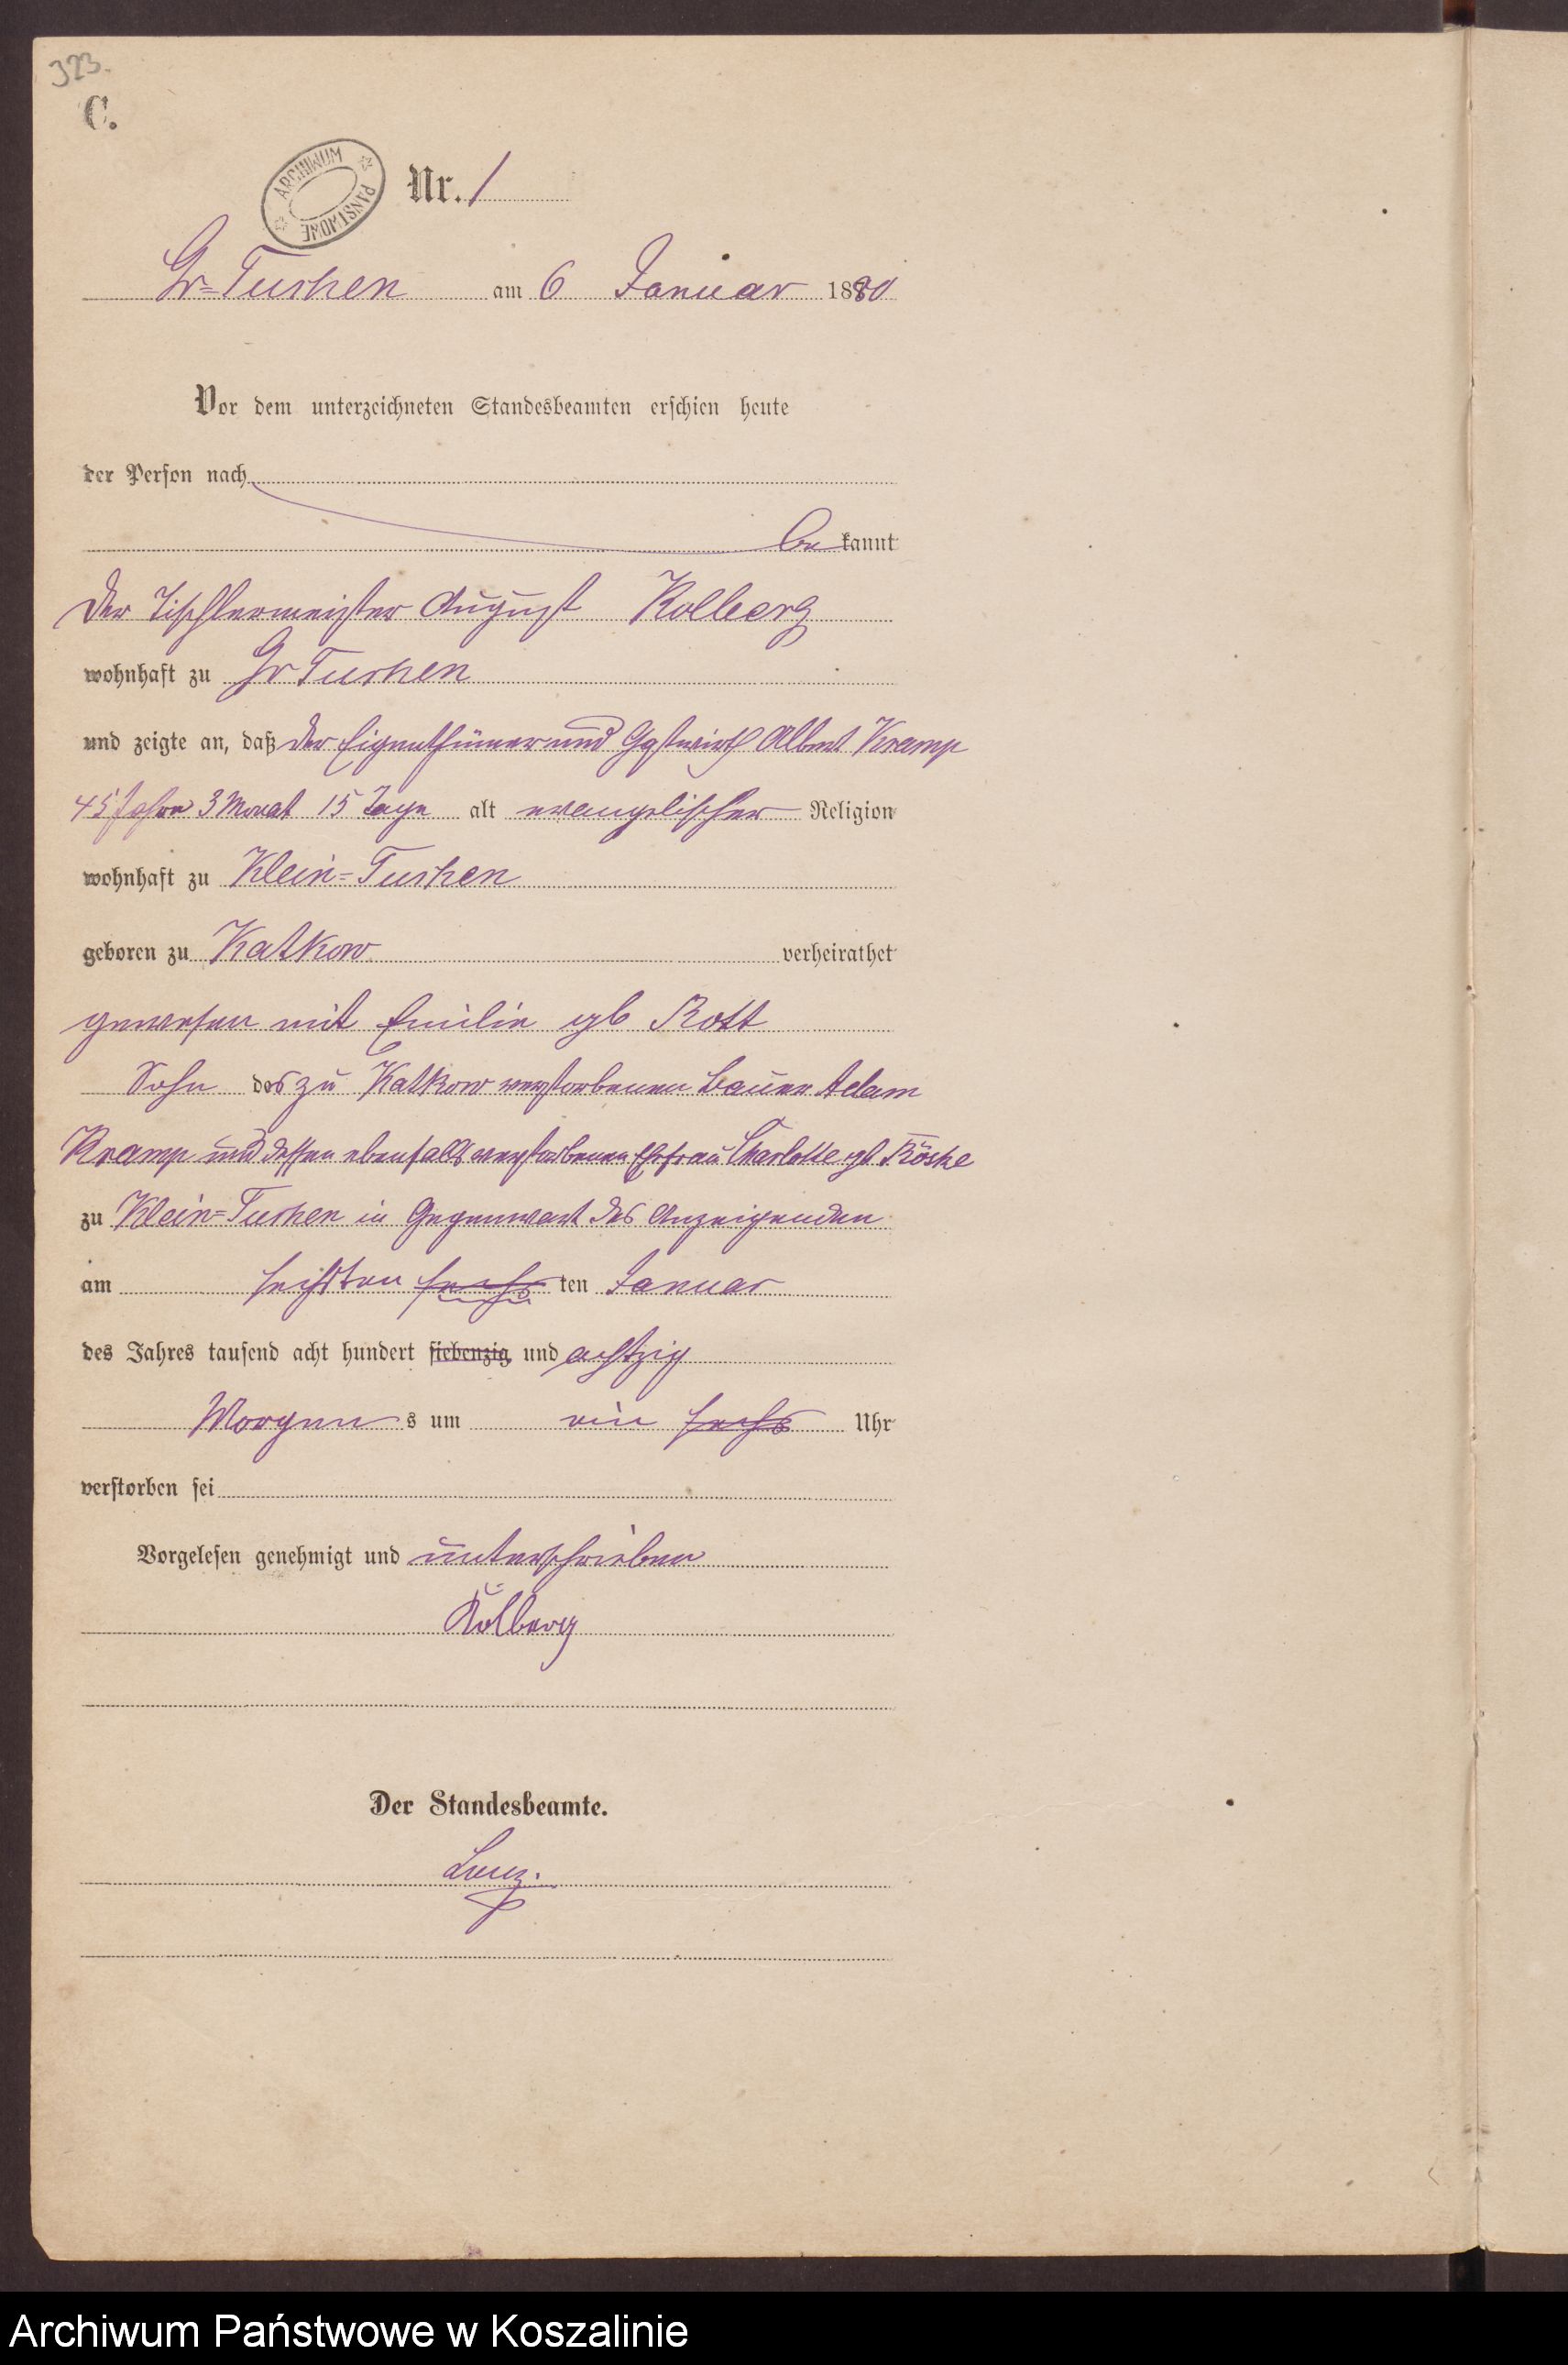 323.
C.
ARCHIWUM PAŃSTWOWE
Nr. 1
Gr=Tuchen am 6 Januar 1880
Vor dem unterzeichneten Standesbeamten erschien heute
der Person nach
bekannt
der Tischlermeister August Kolberg
wohnhaft zu Gr Tuchen
und zeigte an, daß der Eigenthümer und Gastwirth Albert Kramp
45 Jahre 3 Monat 15 Tage alt evangelischer Religion
wohnhaft zu Klein=Tuchen
geboren zu Katkow verheirathet
gewesen mit Emilie gb Rott
Sohn des zu Katkow verstorbenen Bauer Adam
Kramp und dessen ebenfalls verstorbenen Ehefrau Charlotte gb Röske
zu Klein=Tuchen in Gegenwart des Anzeigenden
am sechsten sechs ten Januar
des Jahres tausend acht hundert siebenzig und achtzig
Morgens um ein sechs Uhr
verstorben sei
Vorgelesen genehmigt und unterschrieben
Kolberg
Der Standesbeamte.
Lenz.
Archiwum Państwowe w Koszalinie